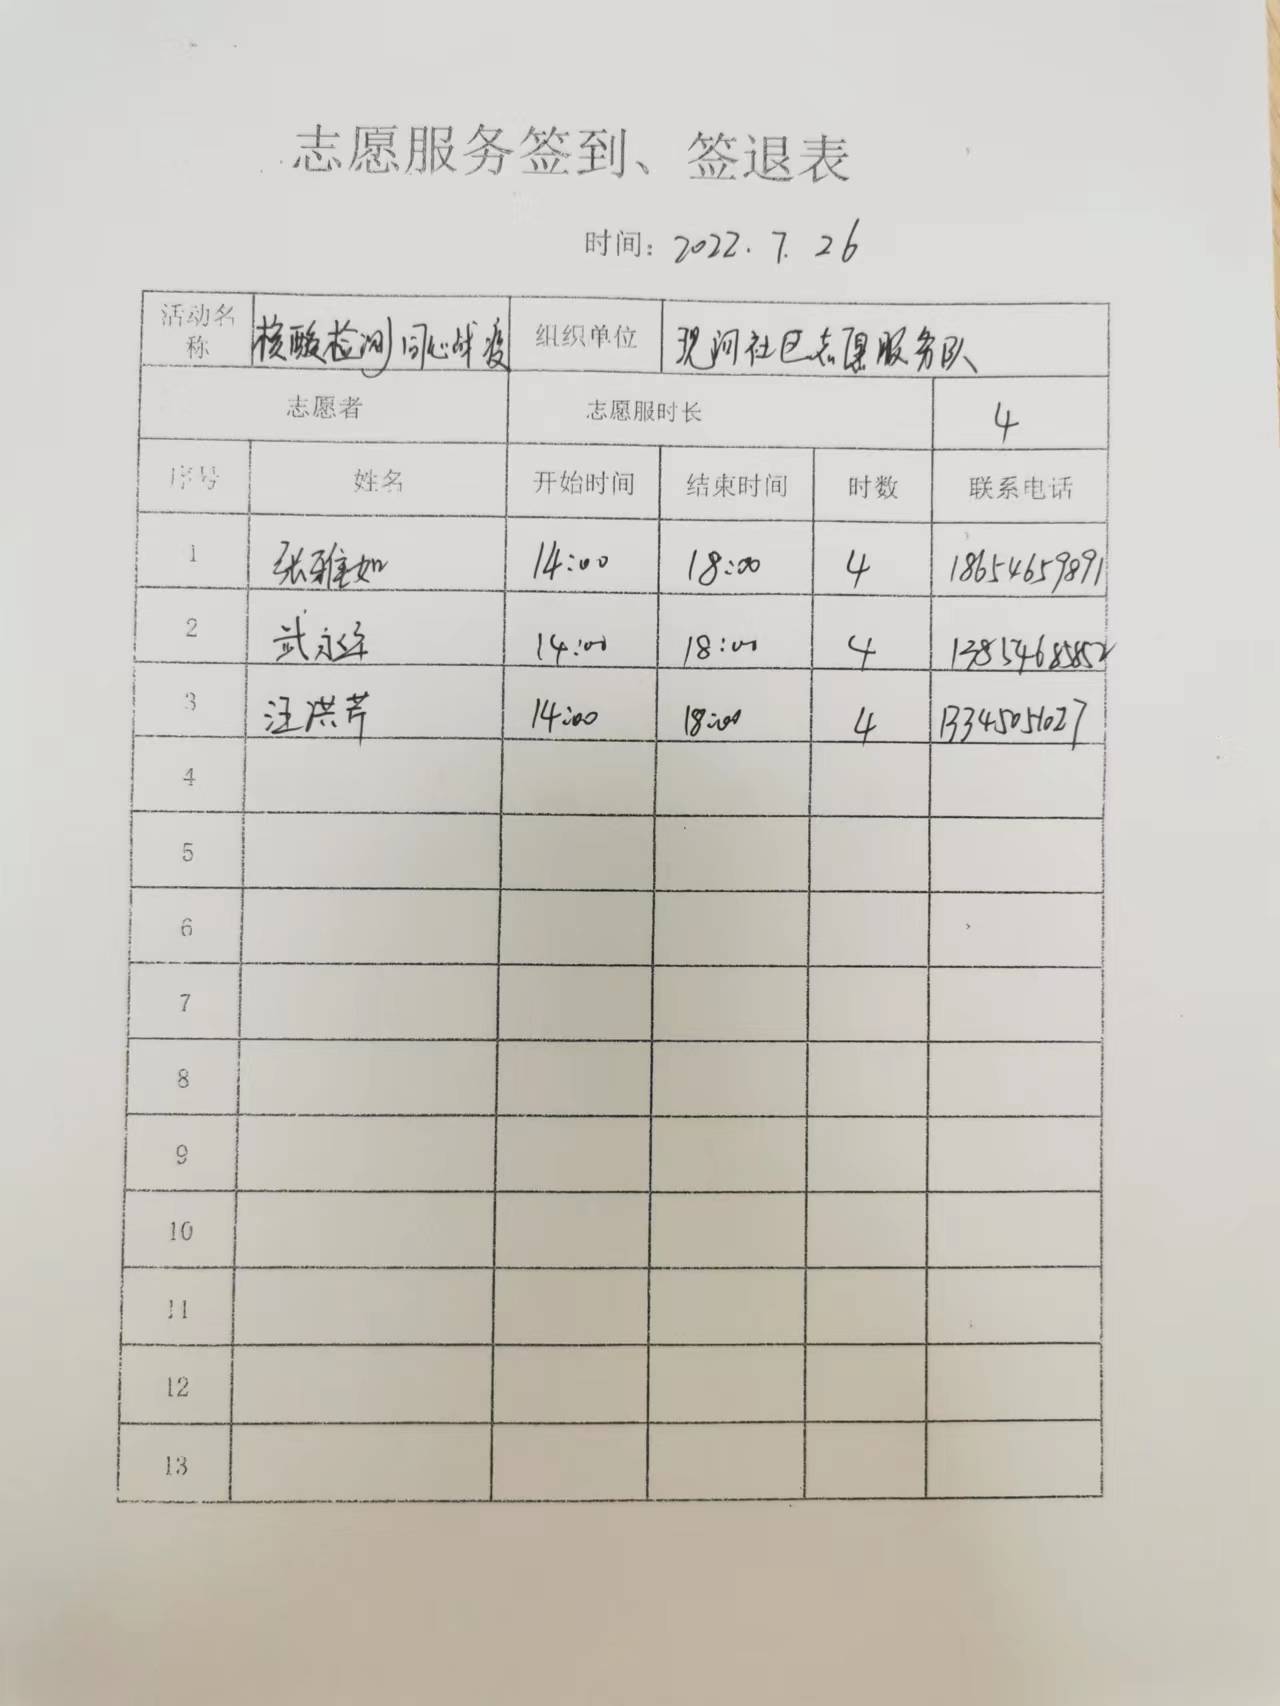 志愿服务签到、签退表
时间：2022.7.26
活动名称 核酸检测 同心战疫 组织单位 现河社区志愿服务队
志愿者 志愿服时长 4
序号 姓名 开始时间 结束时间 时数 联系电话
1 张雅如 14:00 18:00 4 18654659891
2 武永军 14:00 18:00 4 13854685852
3 汪洪芹 14:00 18:00 4 13345051027
4
5
6
7
8
9
10
11
12
13